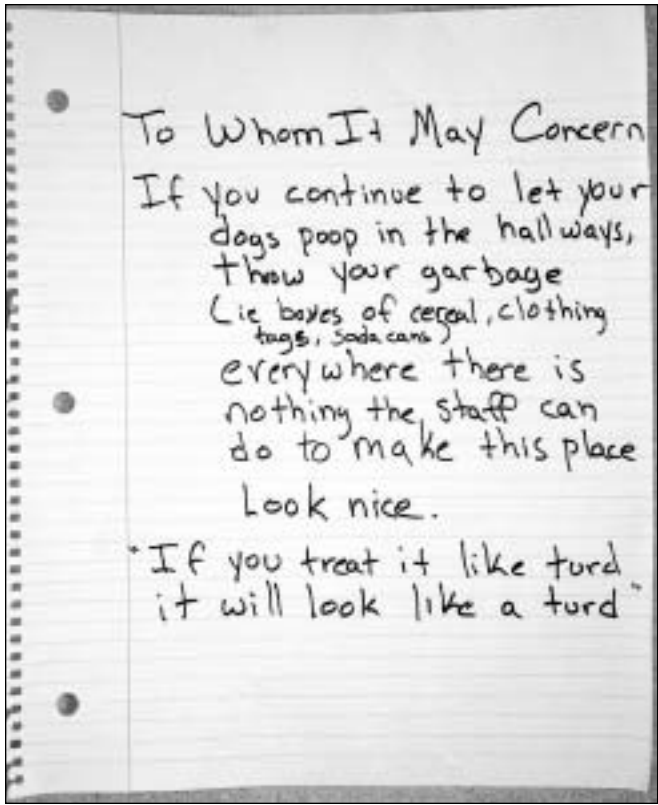 To Whom It May Concern
If you continue to let your
dogs poop in the hallways,
throw your garbage
(ie boxes of cereal, clothing
tags, soda cans)
everywhere there is
nothing the staff can
do to make this place
Look nice.
"If you treat it like turd
it will look like a turd"